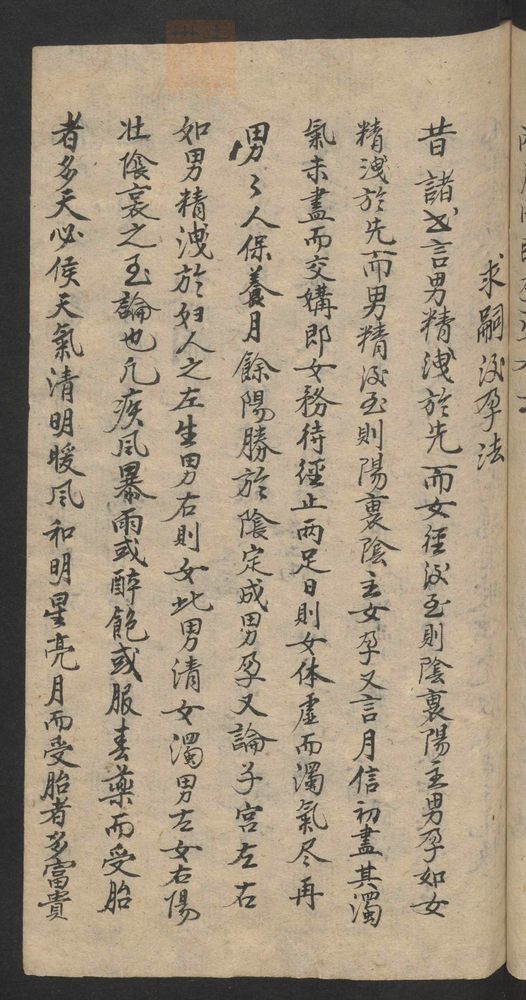 求嗣汝孕法
昔諸書言男精洩於先而女徑後至則陰裹陽主男孕如女
精洩於先而男精後至則陽裹陰主女孕又言月信初盡其濁
氣未盡而交媾即女務待徑止两足日則女体虛而濁氣尽再
男々人保養月餘陽勝於陰定成男孕又論子宮左右
如男精洩於妇人之左生男右則女此男清女濁男左女右陽
壮陰衰之至論也凡疾風暴雨或醉飽或服春藥而受胎
者多夭必侯天氣清明暖风和明星亮月而受胎者多富貴